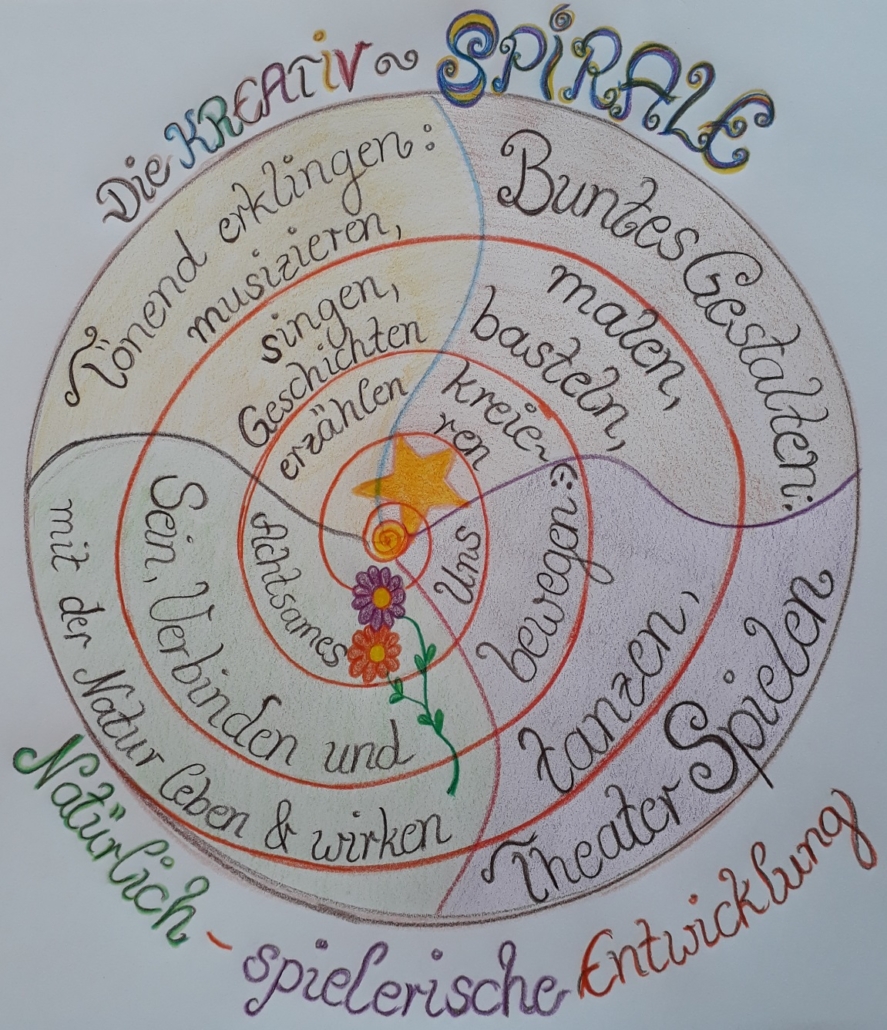 Die KREATiV~SPiRALE
Tönend erklingen:
musizieren,
singen,
Geschichten
erzählen
Buntes Gestalten:
malen,
basteln,
kreie~
ren
Uns
bewegen:
tanzen,
Theater Spielen
Achtsames
Sein, Verbinden und
mit der Natur leben & wirken
Natürlich - spielerische Entwicklung